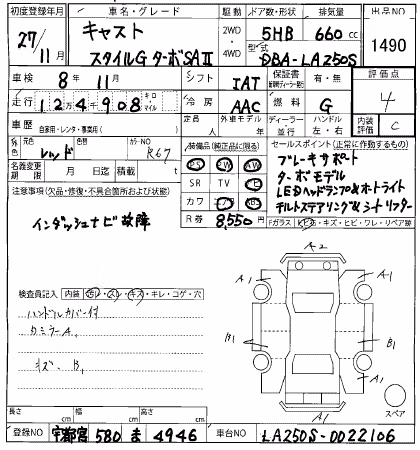 初度登録年月 車名・グレード 駆動 ドア数・形状 排気量 出品NO
27/11 キャスト スタイルG ターボSAⅡ 2WD・4WD 5HB 660 cc 1490
型式 DBA-LA250S
車検 8年 11月 シフト IAT 保証書 有・無 評価点
走行 124908 キロ・マイル 冷房 AAC 燃料 G 4
車歴 自家用・レンタ・事業用( ) 定員 人 外車モデル 年 ディーラー 並行 ハンドル 左・右 内装評価 C
外装色 元色 レッド カラーNO R67 装備品(純正品に限る) セールスポイント(正常に作動するもの)
名義変更期限 月 日 月 日迄 PS AW PW
SR TV
カワ ABS
ブレーキサポート
ターボモデル
LEDヘッドランプ&オートライト
チルトステアリング&シートリフター
注意事項(欠品・修復・不具合箇所および状態) R券 8,550円
Fガラス キズ・ヒビ・ワレ・リペア跡
インダッシュナビ故障
検査員記入 内装 ヨゴレ・スレ・キズ・キレ・コゲ・穴
ハンドルカバー付
カミラーA1
キズ・B1
A2
A1 A1
B1 B1
A1
A1
スペア
長さ cm 幅 cm 高さ cm
登録NO 宇都宮 580 ま 4946 車台NO LA250S-0022106